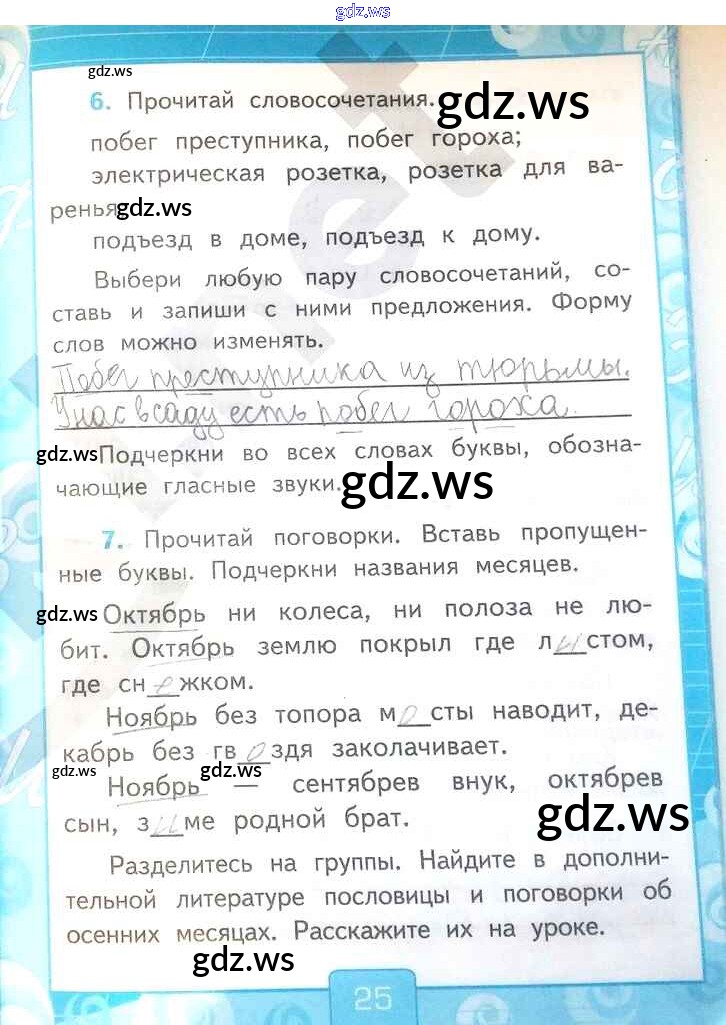 gdz.ws
gdz.ws
6. Прочитай словосочетания. gdz.ws
побег преступника, побег гороха;
электрическая розетка, розетка для ва-
ренья gdz.ws
подъезд в доме, подъезд к дому.
Выбери любую пару словосочетаний, со-
ставь и запиши с ними предложения. Форму
слов можно изменять.
Побег преступника из тюрьмы.
У нас в саду есть побег гороха.
gdz.ws Подчеркни во всех словах буквы, обозна-
чающие гласные звуки. gdz.ws
7. Прочитай поговорки. Вставь пропущен-
ные буквы. Подчеркни названия месяцев.
gdz.ws Октябрь ни колеса, ни полоза не лю-
бит. Октябрь землю покрыл где листом,
где снежком.
Ноябрь без топора мосты наводит, де-
кабрь без гвоздя заколачивает.
gdz.ws gdz.ws
Ноябрь — сентябрев внук, октябрев
сын, зиме родной брат. gdz.ws
Разделитесь на группы. Найдите в дополни-
тельной литературе пословицы и поговорки об
осенних месяцах. Расскажите их на уроке.
gdz.ws
25